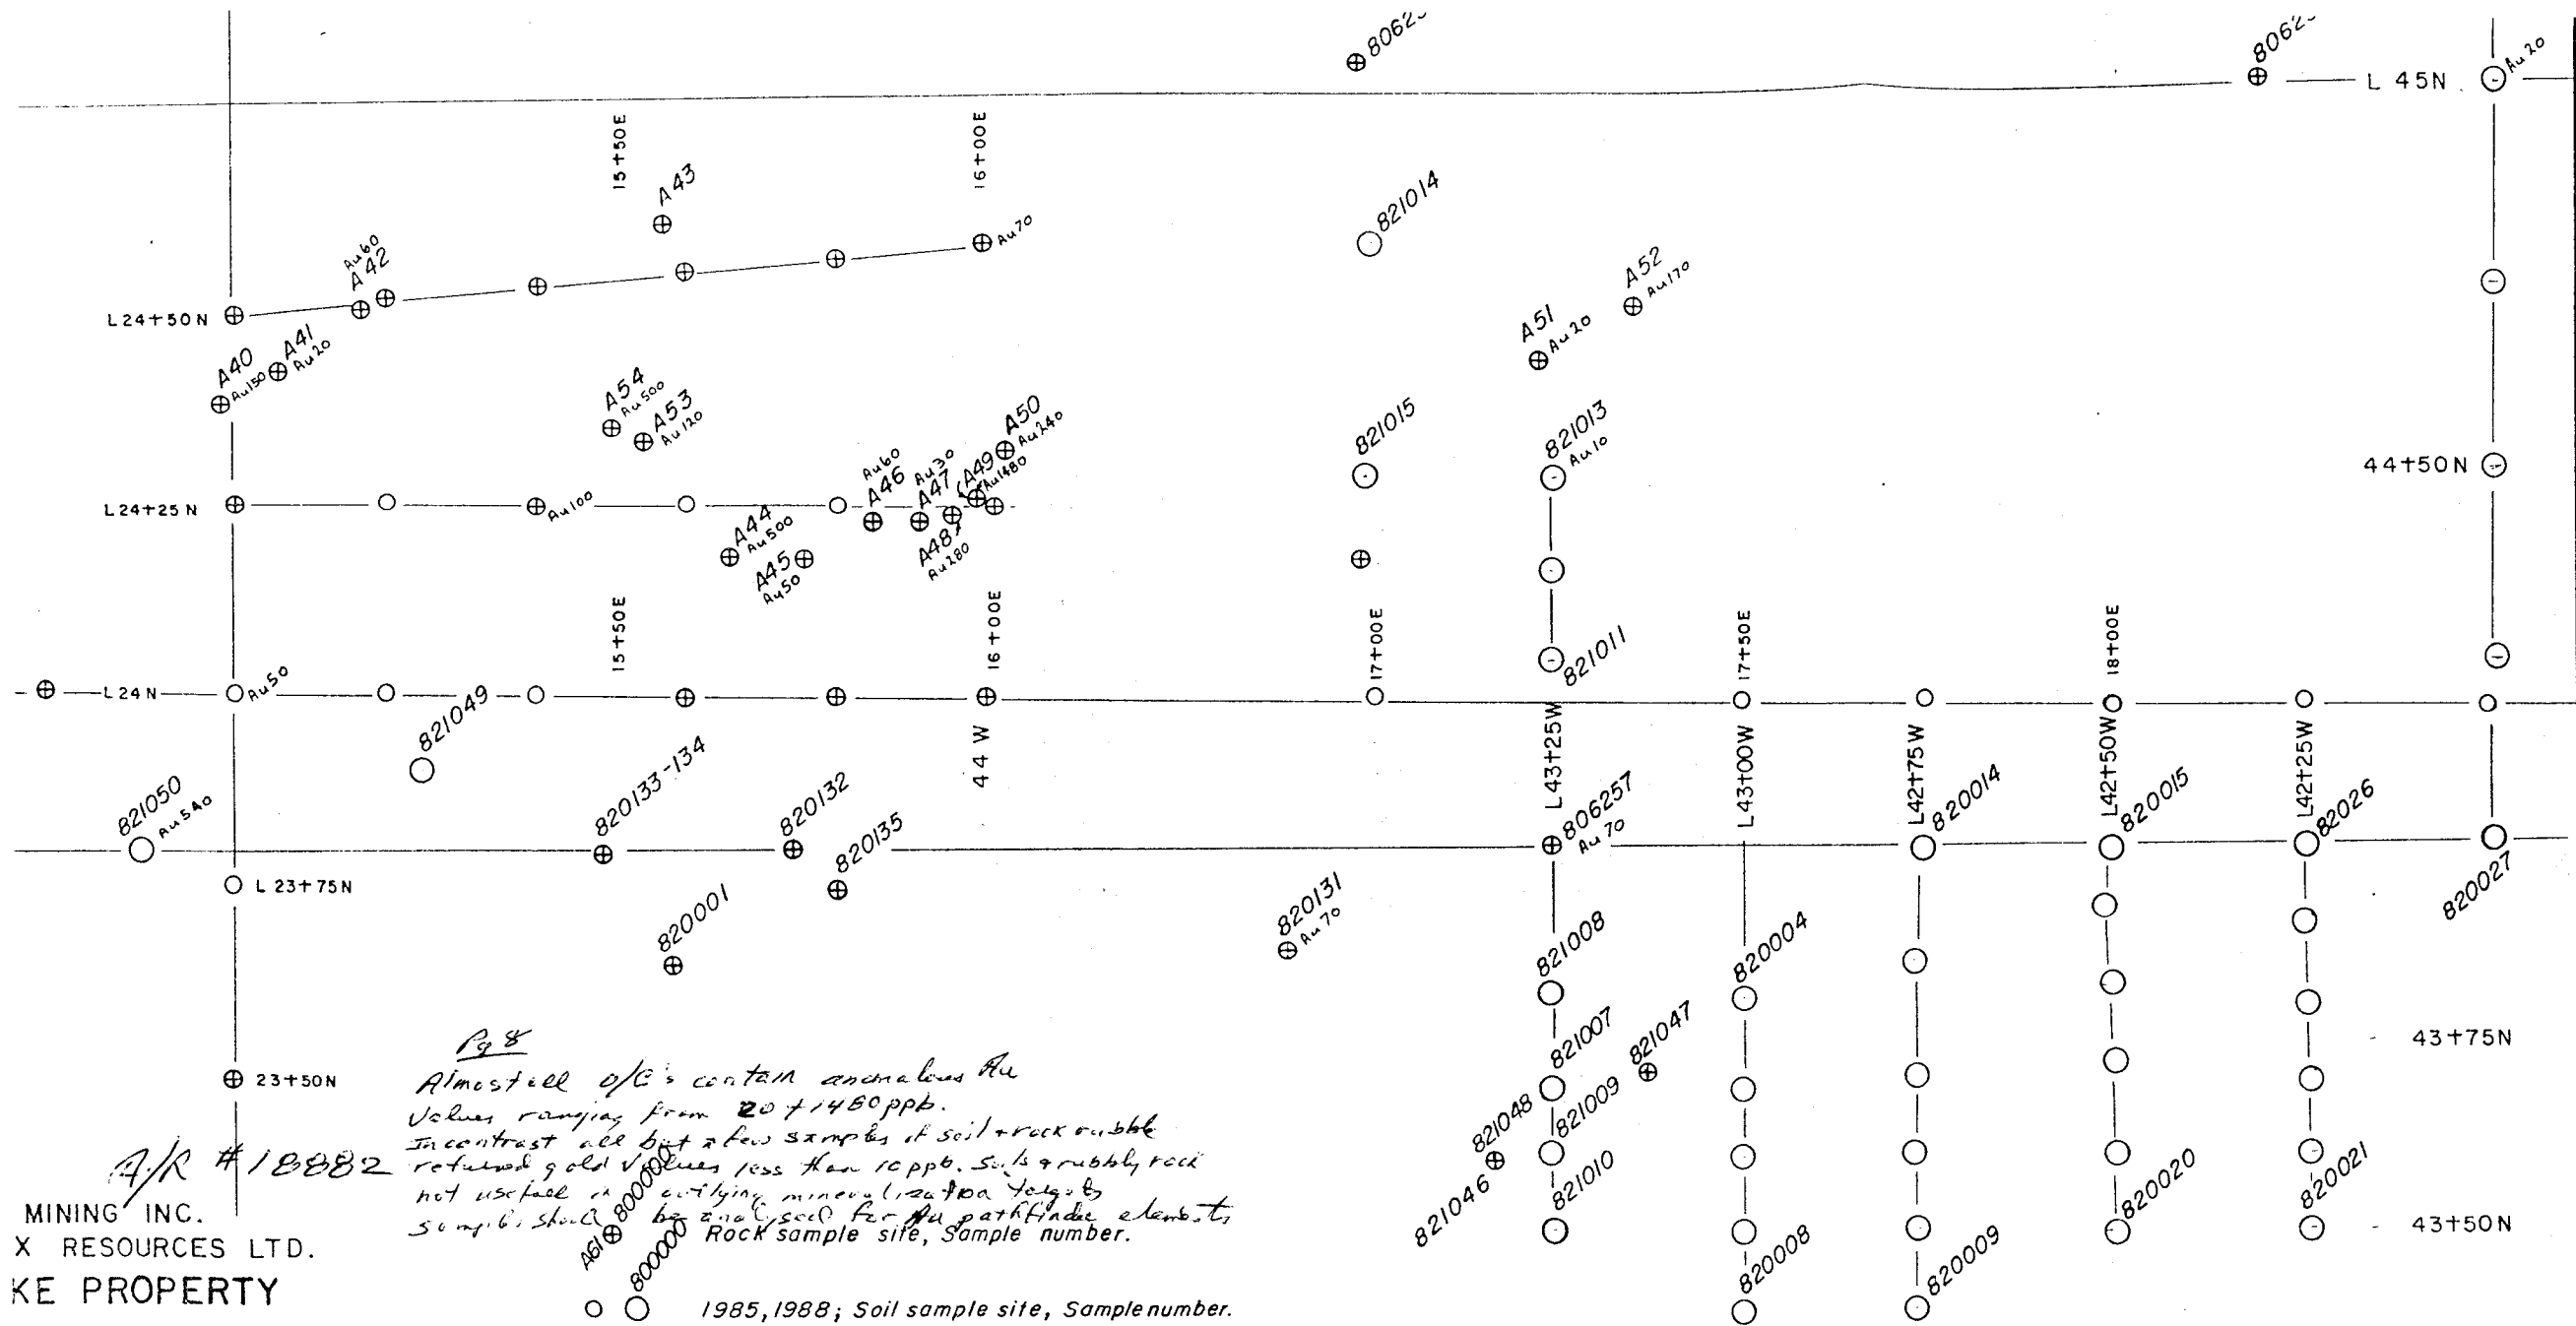 8062
8062
Au 20
L 45N
15+50E
16+00E
A 43
821014
Au 70
Au 60
A 42
A 52
Au 170
L 24+50 N
A 51
Au 20
A 41
Au 20
A40
Au 150
A54
Au 500
A53
Au 120
A50
Au 240
821015
821013
Au 10
44+50N
Au 60
A46
Au 30
A47
A49
Au 1480
L 24+25 N
Au 100
A44
Au 500
A45
Au 50
A48
Au 280
15+50E
16+00E
17+00E
821011
17+50E
18+00E
L 24 N
Au 50
821049
44 W
L 43+25W
L43+00W
L42+75W
L42+50W
L42+25W
821050
Au 540
820133-134
820132
820135
806257
Au 70
820014
820015
82026
820027
L 23+75N
820001
820131
Au 70
821008
820004
821007
821047
43+75N
23+50N
821048
821009
821046
821010
820008
820009
820020
820021
43+50N
Pg 8
Almost all o/c's contain anomalous Au
Values ranging from 20 + 1480 ppb.
In contrast all but a few samples of soil + rock rubble
returned gold values less than 10 ppb. Soils & rubbly rock
not usefull in outlying mineralization targets
samples should be analysed for Au pathfinder elements
A/R # 18882
MINING INC.
X RESOURCES LTD.
KE PROPERTY
A61
800000
Rock sample site, Sample number.
800000
1985, 1988; Soil sample site, Sample number.